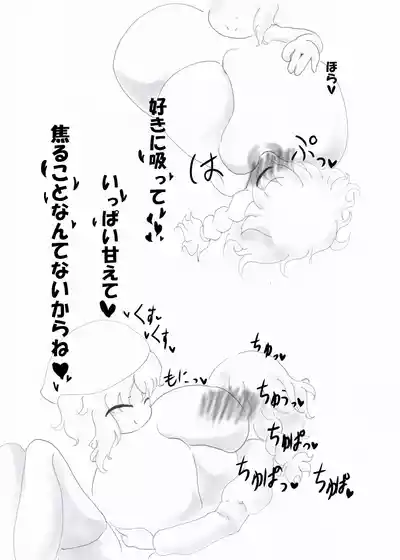 ほら♥
ぷっ♥
は
好きに吸って♥
いっぱい甘えて♥
焦ることなんてないからね♥
くす♥
くす♥
もにっ♥
ちゅっ♥
ちゅうっ♥
ちゅぱっ♥
ちゅぱっ♥